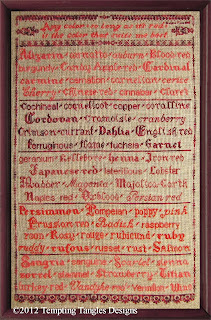 Any color so long as it's red
is the color that suits me best
Alizarin auburn Blood red
burgundy Cardinal
carmine carnation carnelian cerise
Cherry cinnabar Claret
Cochineal coquelicot copper coralline
Cordovan Cramoisie cranberry
Crimson currant Dahlia English red
Ferruginous flame fuchsia Garnet
geranium Hellebore henna Iron red
Japanese red lateritious Lobster
Madder Magenta Majolica Earth
Naples red Persian red
Persimmon Pompeian poppy Pink
Prussian red Radish raspberry
roan Rosy rouge rubicund ruby
ruddy rufous russet rust Salmon
Sanguine Scarlet sienna
sorrel stammel Strawberry Titian
Turkey red vermilion Wine
©2012 Tempting Tangles Designs